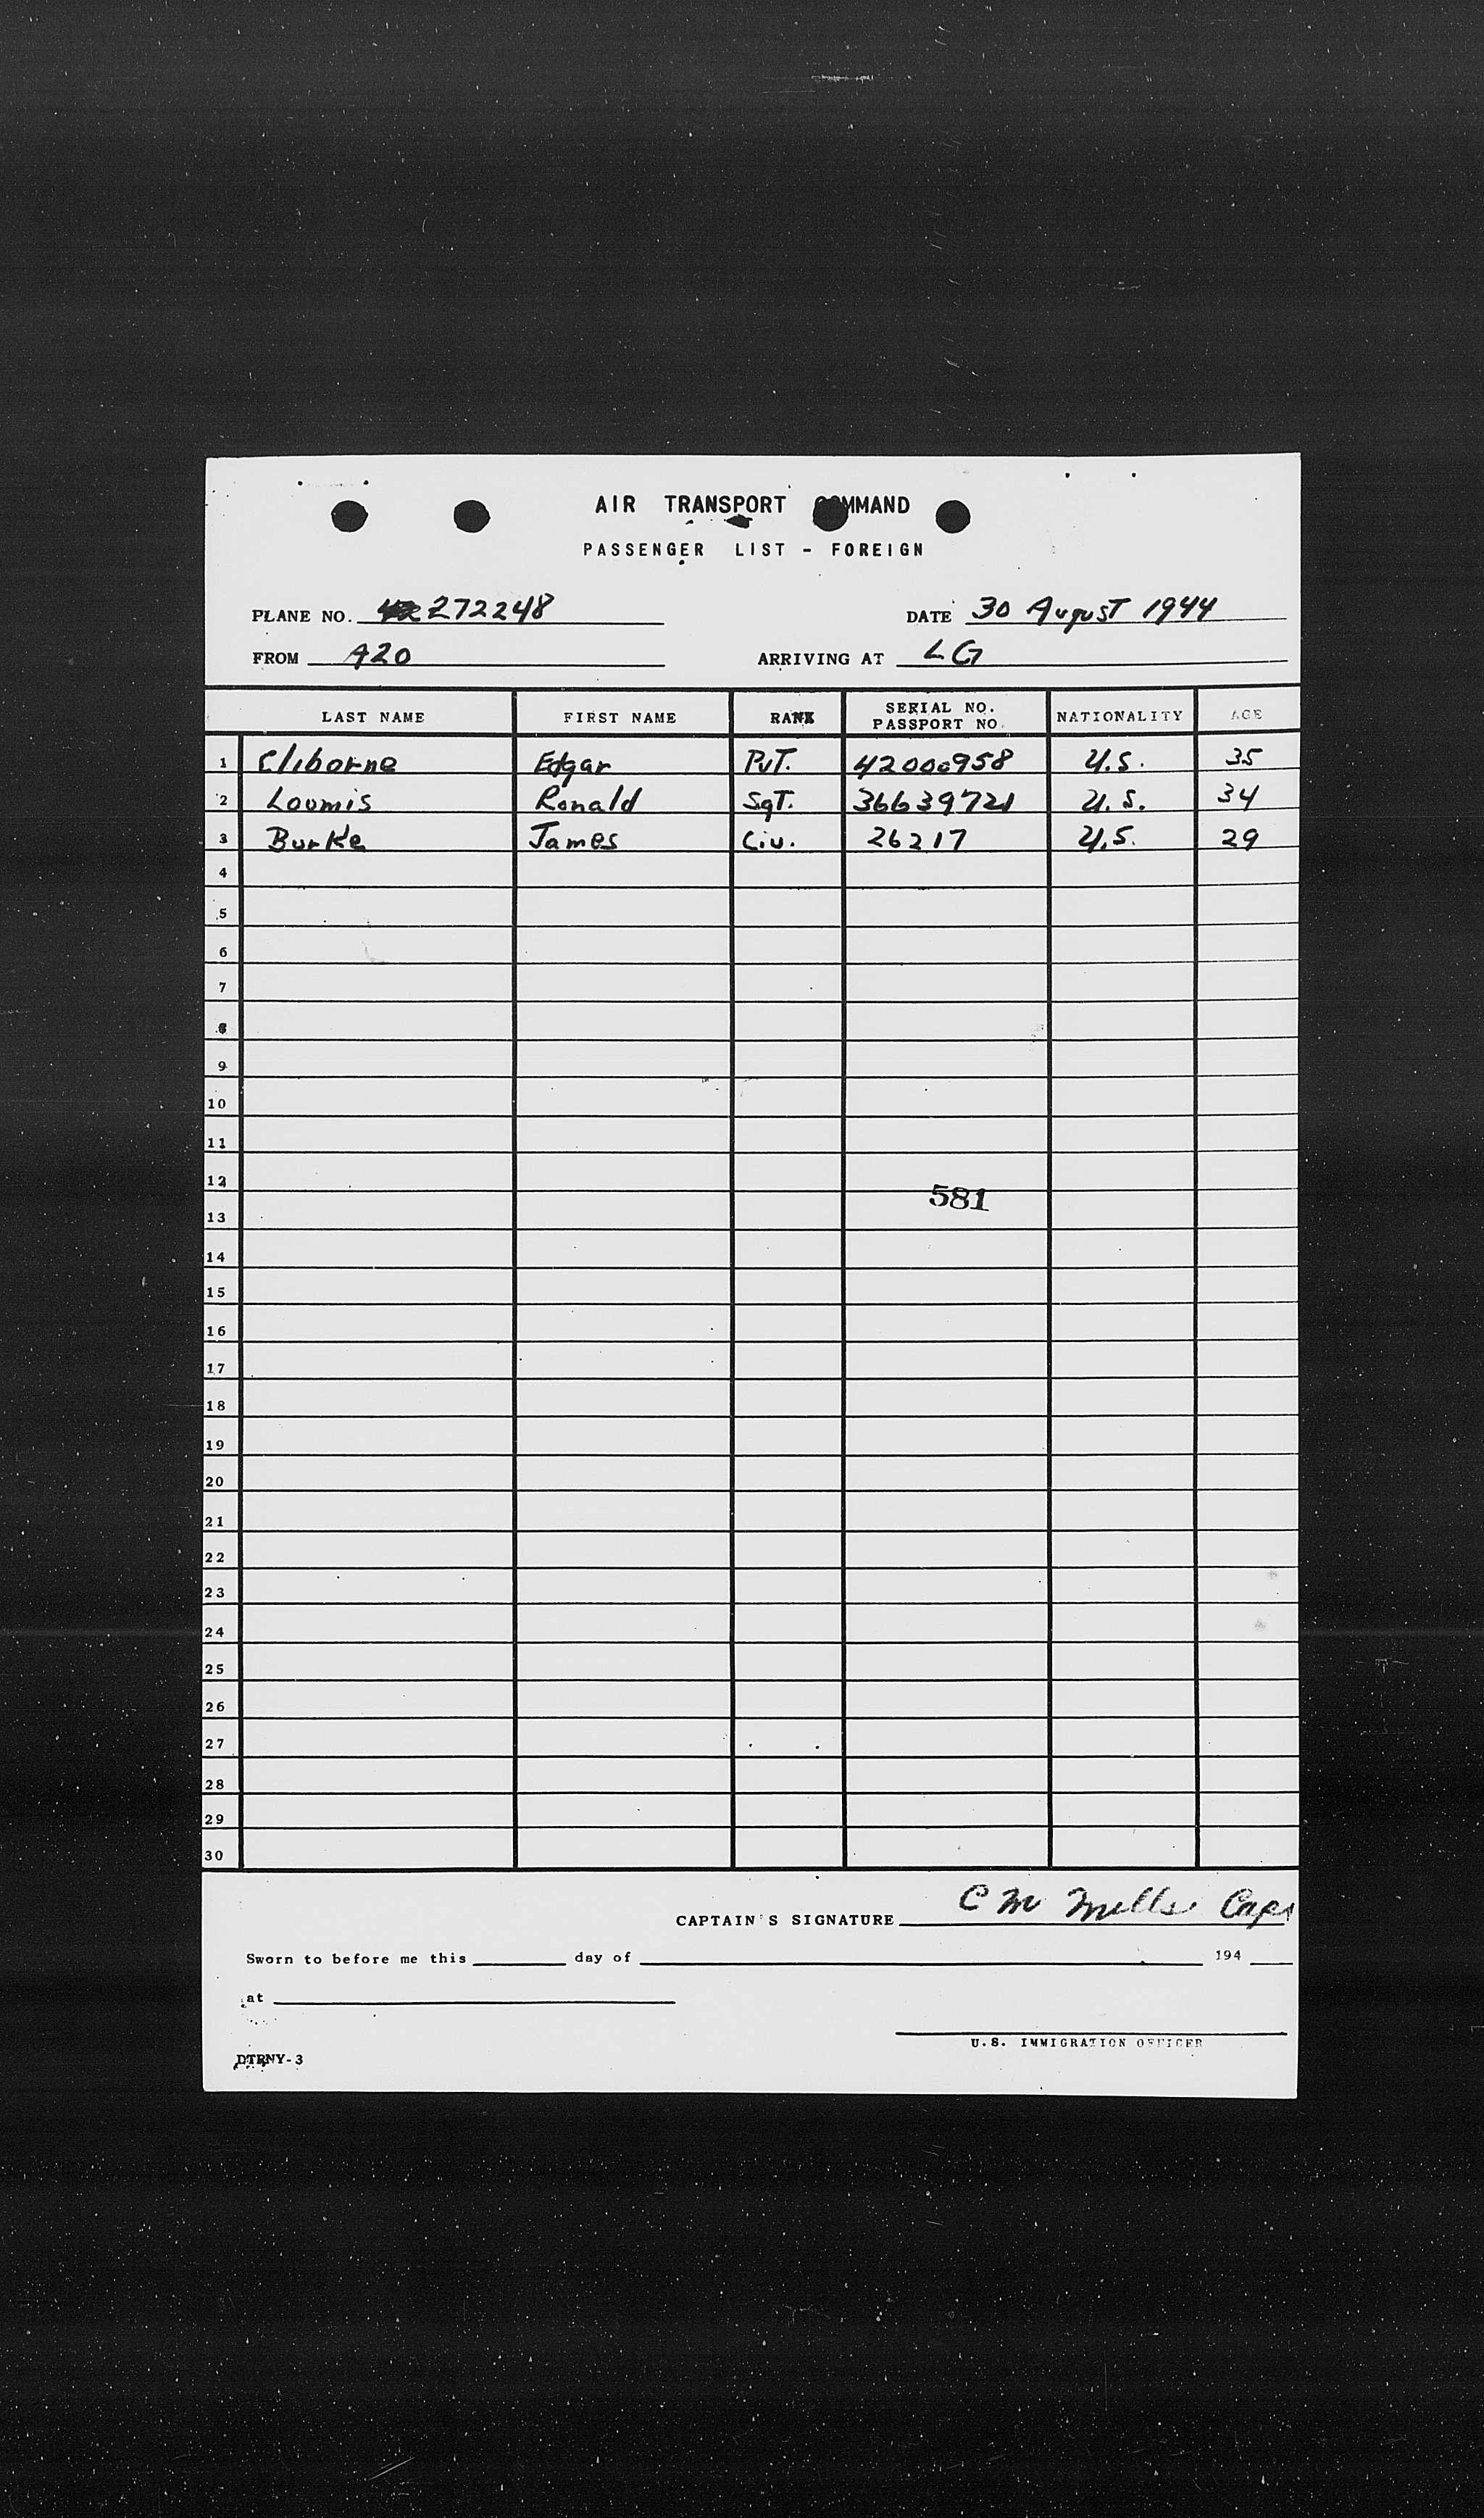 AIR TRANSPORT COMMAND
PASSENGER LIST - FOREIGN
PLANE NO. 272248 DATE 30 August 1944
FROM A20 ARRIVING AT LG
LAST NAME FIRST NAME RANK SERIAL NO. PASSPORT NO. NATIONALITY AGE
1 Cliborne Edgar Pvt. 42000958 U.S. 35
2 Loomis Ronald Sgt. 36639721 U.S. 34
3 Burke James Civ. 26217 U.S. 29
4
5
6
7
8
9
10
11
12
581
13
14
15
16
17
18
19
20
21
22
23
24
25
26
27
28
29
30
CAPTAIN'S SIGNATURE C M Mills Capt
Sworn to before me this day of 194
at
U.S. IMMIGRATION OFFICER
DTRNY-3